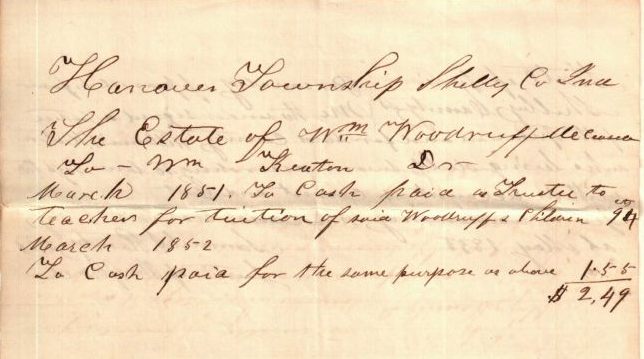 Hanover Township Shelby Co Ind
The Estate of Wm Woodruff deceased
To - Wm Keaton Dr
March 1851. To Cash paid as Trustee to
teacher for tuition of said Woodruffs Children 94
March 1852
To Cash paid for the same purpose as above 1.55
$ 2,49